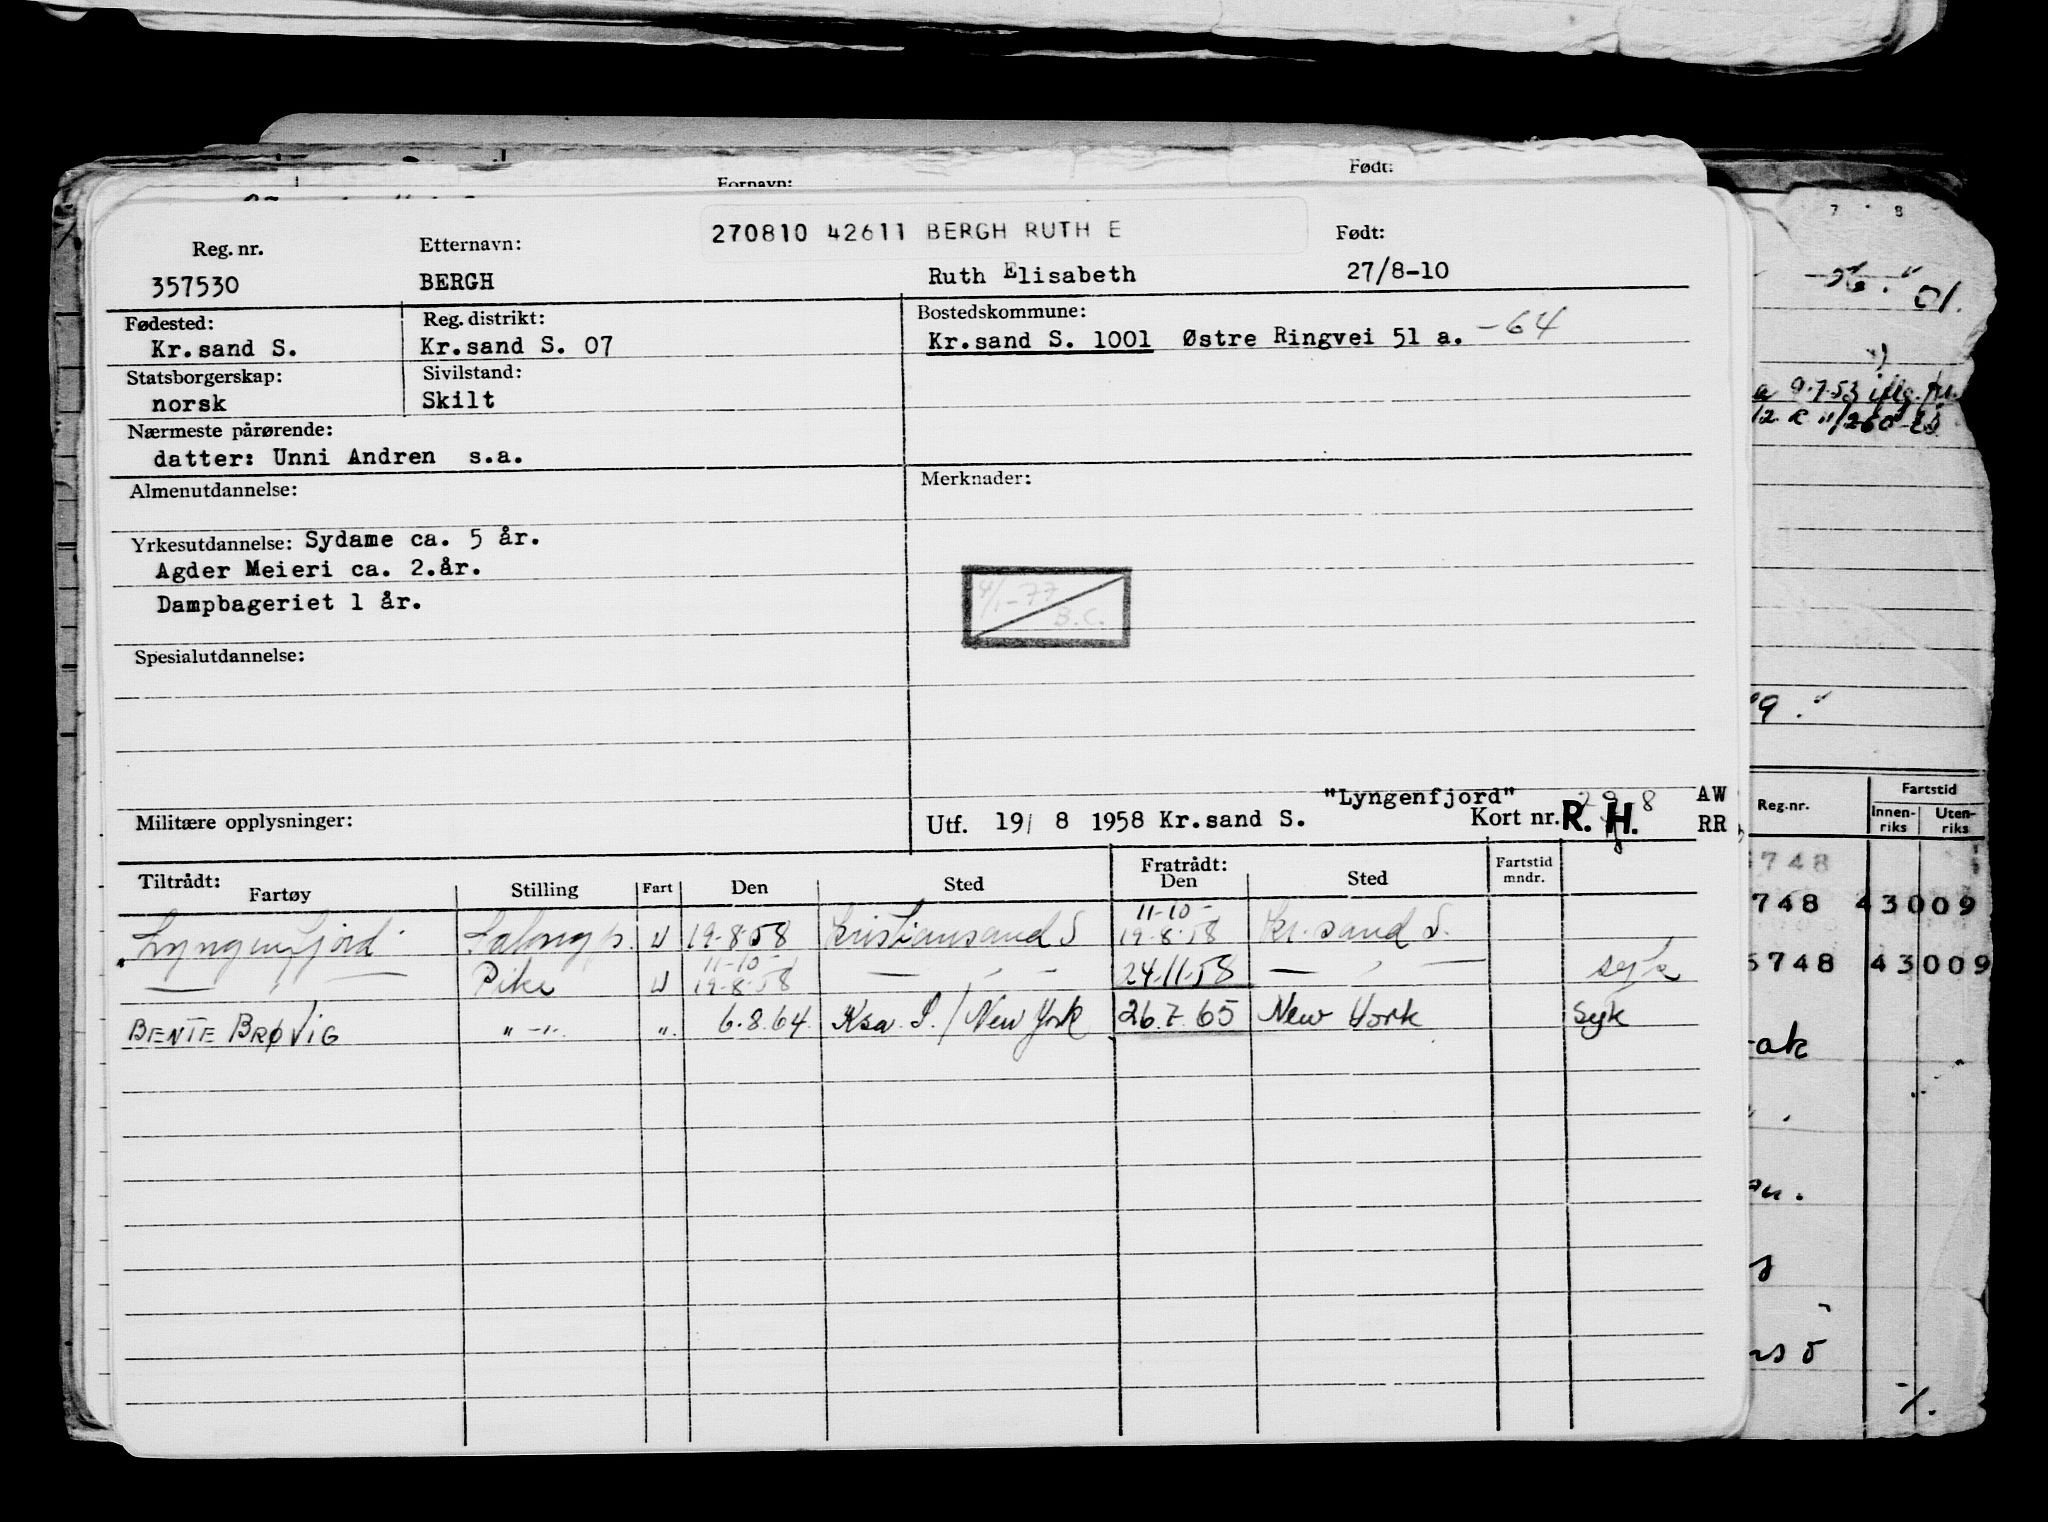 Fornavn: Født:
270810 42611 BERGH RUTH E
Reg. nr. Etternavn: Født:
357530 BERGH Ruth Elisabeth 27/8-10
Fødested: Reg. distrikt: Bostedskommune:
Kr.sand S. Kr.sand S. 07 Kr.sand S. 1001 Østre Ringvei 51 a. -64
Statsborgerskap: Sivilstand:
norsk Skilt
Nærmeste pårørende:
datter: Unni Andren s.a.
Almenutdannelse: Merknader:
Yrkesutdannelse: Sydame ca. 5 år.
Agder Meieri ca. 2.år.
4/1-77
B.C.
Dampbageriet 1 år.
Spesialutdannelse:
"Lyngenfjord" AW
Militære opplysninger: Utf. 19/ 8 1958 Kr.sand S. Kort nr. R. H. RR
Tiltrådt: Fratrådt:
Fartøy Stilling Fart Den Sted Den Sted Fartstid mndr.
Lyngenfjord Salongp. U 19-8-58 Kristiansand S 11-10- 19-8-58 Kr.sand S.
— " — Pike U 11-10- 19-8-58 — " — 24.11.58 — " — syk
BENTE BRØVIG " -". ". 6.8.64. Ksa. S. / New York 26.7.65 New York Syk
7 8
01.
a 9.7.53 iflg.
9.
Reg.nr. Fartstid
Innenriks Utenriks
748
748 43009
5748 43009